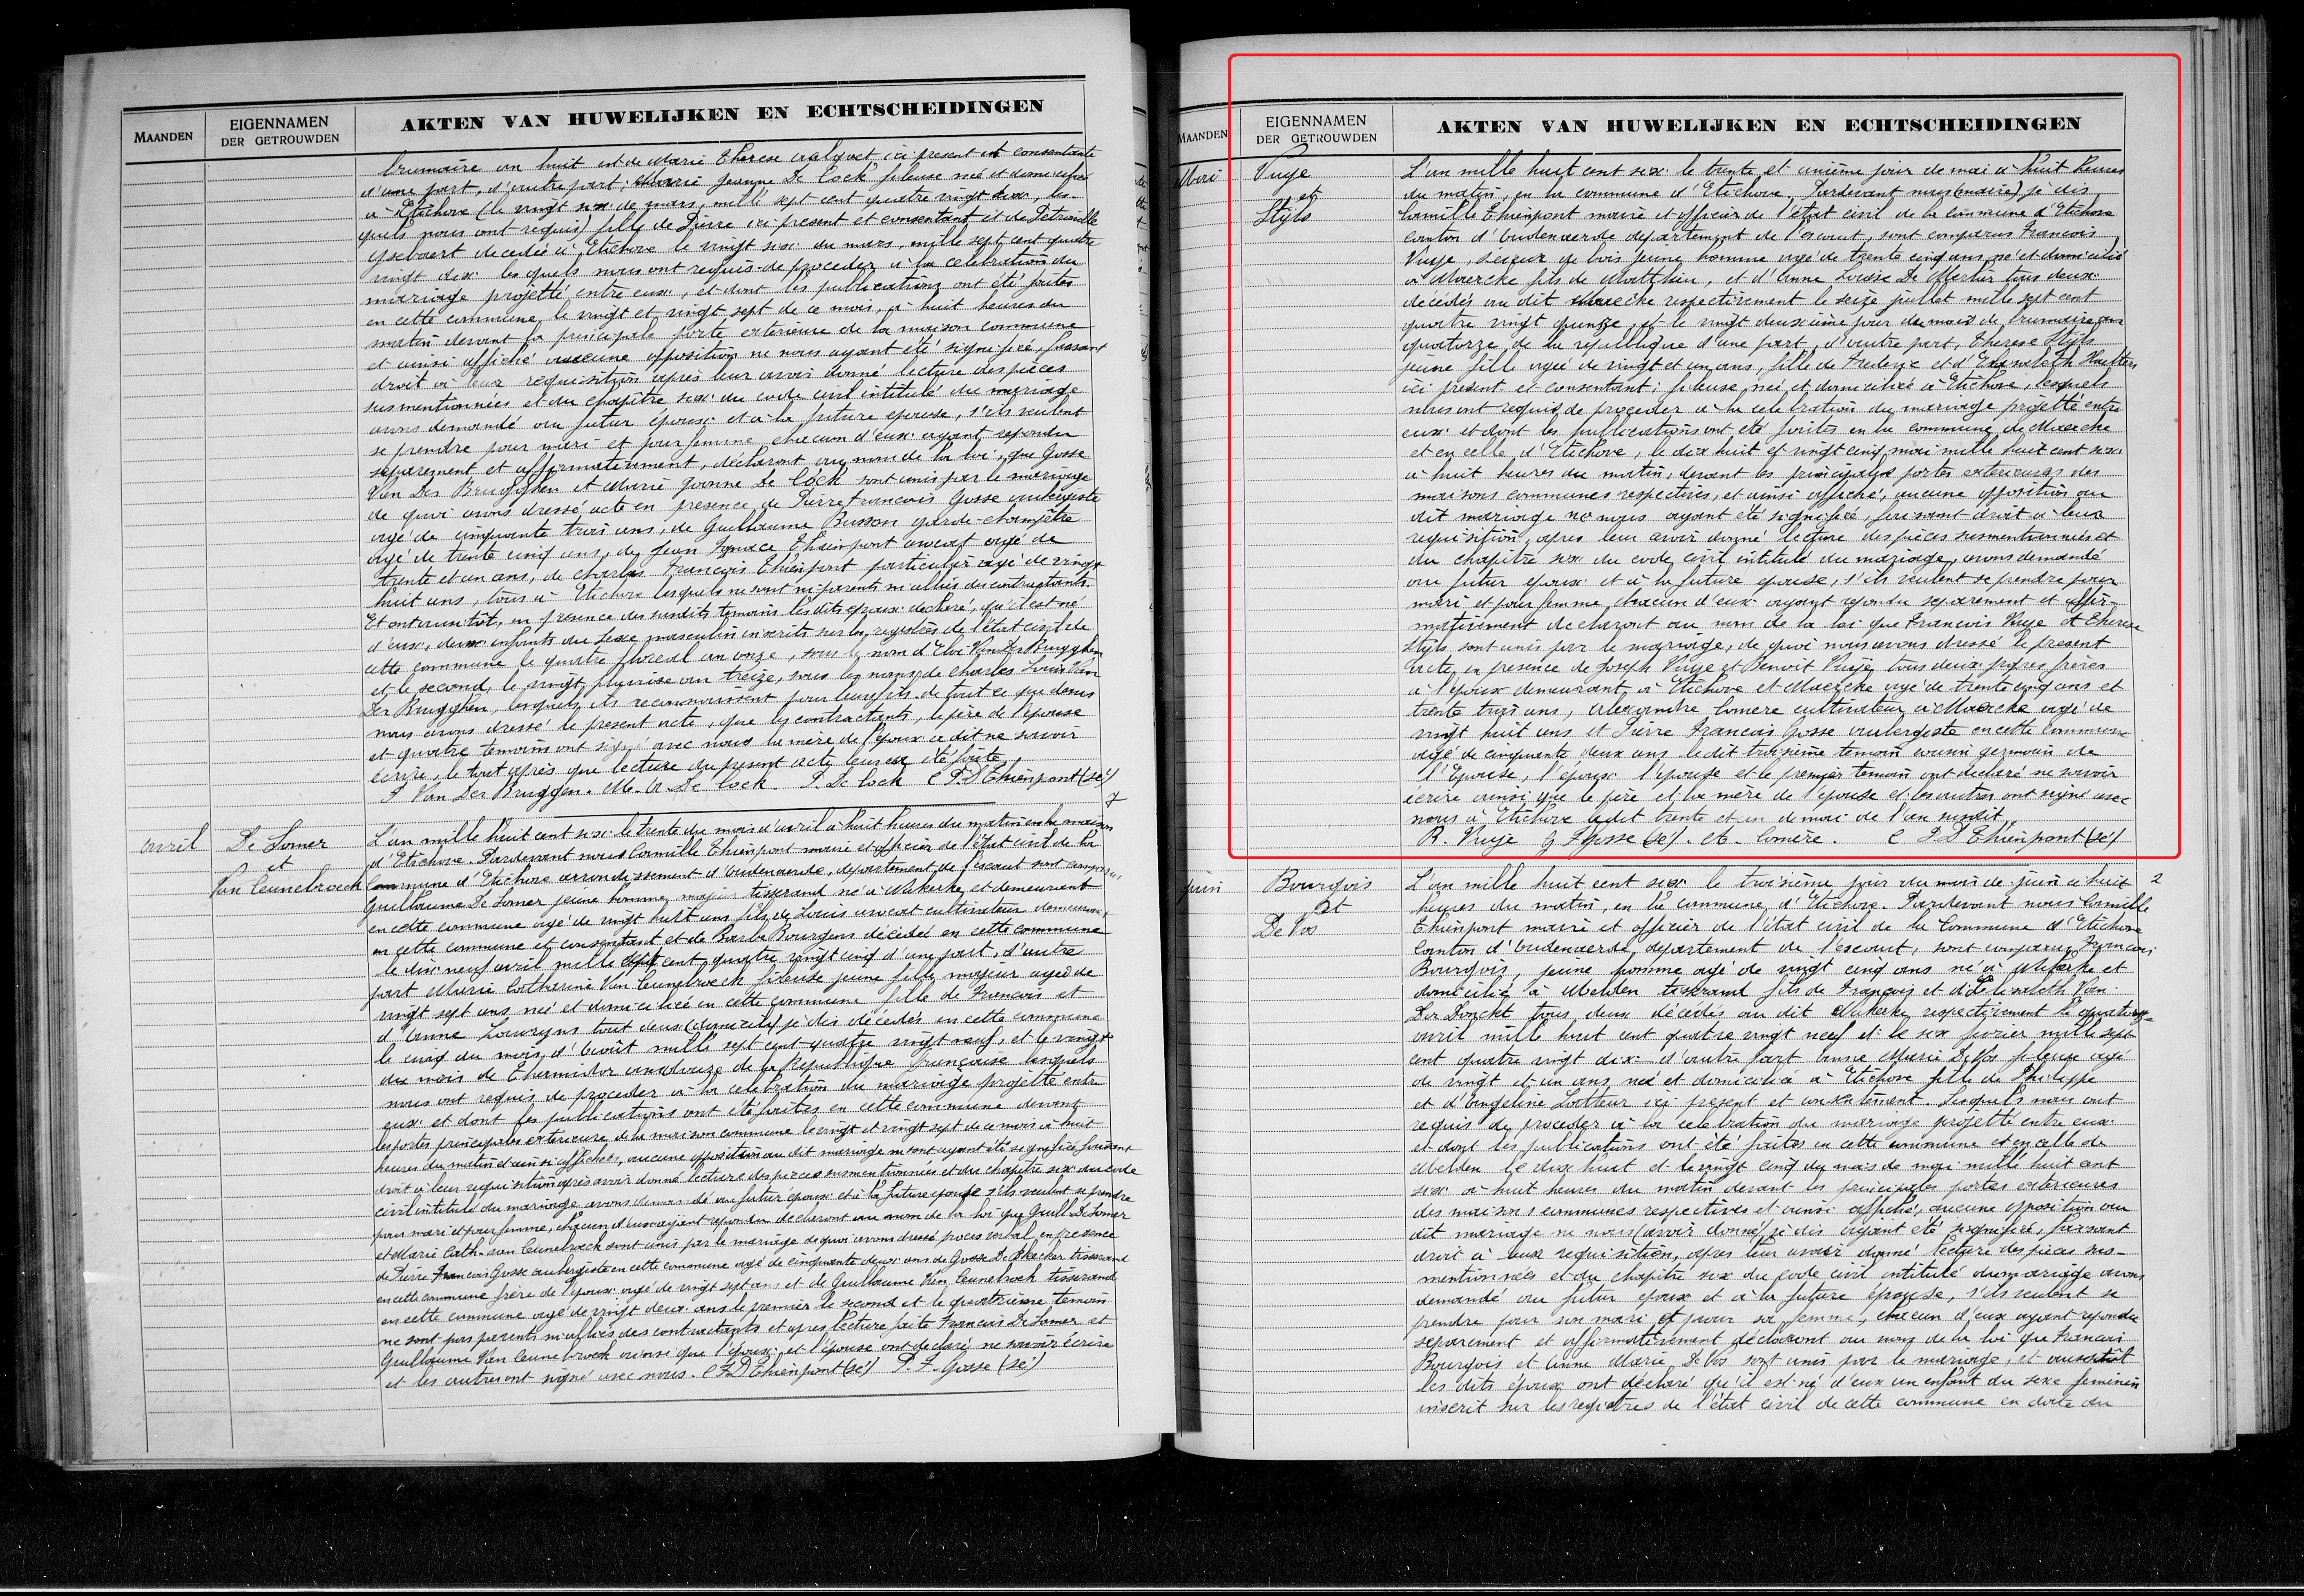 MAANDEN
EIGENNAMEN
DER GETROUWDEN
AKTEN VAN HUWELIJKEN EN ECHTSCHEIDINGEN
brumaire an huit et de Marie Therese valquet, ici present et consentante
d'une part, d'autre part, Marie Jeanne De Cock fileuse née et domiciliée
à Etichove (le vingt six de mars, mille sept cent quatre vingt six, les-
quels nous ont requis) fille de Pierre ici present et consentant et de Petronille
Ysebaert decedée à Etichove le vingt six du mars, mille sept cent quatre
vingt dix les quels nous ont requis de proceder à la celebration du
mariage projetté entre eux, et dont les publications ont été faites
en cette commune, le vingt et vingt sept de ce mois, à huit heures du
matin devant la principale porte exterieure de la maison commune
et ainsi affiché aucune opposition ne nous ayant été signifiée, faisant
droit à leur requisition après leur avoir donné lecture des pièces
susmentionnées et du chapître six du code civil intitulé du mariage
avons demandé au futur époux et à la future epouse, s'ils veulent
se prendre pour mari et pour femme, chacun d'eux ayant repondu
séparement et affirmativement, déclaront au nom de la loi, que Gosse
Van Der Brugghen et Marie Jeanne De Cock sont unis par le mariage
de quoi avons dressé acte en presence de Pierre Francois Gosse aubergiste
agé de cinquante trois ans, de Guillaume Busson garde-champêtre
agé de trente cinq ans, de Jean Ignace Thienpont avocat agé de
trente et un ans, de Charles Francois Thienpont particulier agé de vingt
huit ans, tous à Etichove lesquels ne sont ni parents ni alliés des contractants.
Et ont aussitôt, en presence des susdits temoins les dits epoux declaré, qu'il est né
d'eux, deux enfants du sexe masculin inscrits sur les registres de l'état civil de
cette commune le quatre floreal an onze, sous le nom d'Eloi Van Der Brugghen
et le second, le vingt pluviose an treize, sous les noms de Charles Louis Van
Der Brugghen, lesquels ils reconnaissent pour leurs fils de tout ce que dessus
nous avons dressé le present acte, que les contractants, le père de l'épouse
et quatre temoins ont signé avec nous la mère de l'époux a dit ne savoir
écrire, le tout après que lecture du present acte leur eux été faite.
J. Van Der Bruggen. M. A. De Cock. P. De Cock C F. D Thienpont (sé)
7
avril
De Somer
et
Van Ceunebroeck
L'an mille huit cent six le trente du mois d'avril à huit heures du matin en la maison
d'Etichove. Pardevant nous Camille Thienpont maire et officier de l'état civil de la
Commune d'Etichove arrondissement d'Audenaerde, departement de l'escaut sont comparus
Guillaume De Somer jeune homme majeur tisserand né à Nukerke et demeurant
en cette commune agé de vingt huit ans fils de Louis avocat cultivateur demeurant
en cette commune et consentant et de Barbe Bourgeus décédée en cette commune
le dix neuf avril mille sept cent quatre vingt cinq d'une part, d'autre
part Marie Catharine Van Ceunebroeck fileuse jeune fille, majeur agée de
vingt sept ans née et domiciliée en cette commune fille de Francois et
d'Anne Lauwryns tout deux (domicilié) je dis décédés en cette commune
le cinq du mois, d'Août mille sept cent quatre vingt neuf, et le vingt
du mois de Thermidor an douze de la Republique française lesquels
nous ont requis de proceder à la celebration du mariage projetté entre
eux et dont les publications ont été faites en cette commune devant
les portes principales exterieure de la maison commune le vingt et vingt sept de ce mois à huit
heures du matin et ainsi affichés, aucune opposition au dit mariage ne sont ayant été signifiée faisant
droit à leur requisition après avoir donné lecture des pieces susmentionnées et du chapitre six du code
civil intitulé du mariage avons demandé au futur époux et à la future epouse s'ils veulent se prendre
pour mari et pour femme, chacun d'eux ayant repondu declaront au nom de la loi que Guill. De Somer
et Marie Cath. van Ceunebroeck sont unis par le mariage de quoi avons dressé procès verbal, en presence
de Pierre Francois Gosse aubergiste en cette commune agé de cinquante deux ans de Gosse De Ckecker tisserand
en cette commune frère de l'epoux agé de vingt sept ans et de Guillaume Van Ceunebroek tisserand
en cette commune agé de vingt deux ans le premier le second et le quatrième temoin
ne sont pas parents ni alliés des contractants et apres lecture faite Francois De Somer et
Guillaume Van Ceunebroeck ainsi que l'époux et l'épouse ont declaré ne savoir Ecrire
et les autres ont signé avec nous. C F D Thienpont (sé) P. F. Gosse (sé)
MAANDEN
EIGENNAMEN
DER GETROUWDEN
AKTEN VAN HUWELIJKEN EN ECHTSCHEIDINGEN
Mai
Vuye
et
Styls
L'an mille huit cent six le trente et unième jour de mai à huit heures
du matin, en la commune d'Etichove, Pardevant nous (maire) je dis
Camille Thienpont maire et officier de l'état civil de la Commune d'Etichove
canton d'Audenaerde departement de l'escaut, sont comparus Francois
Vuye, scieur de bois jeune homme agé de trente cinq ans né et domicilié
à Maercke fils de Matthieu, et d'Anne Louise De Merlier tous deux
decédés au dit Maercke respectivement le seize juillet mille sept cent
quatre vingt quinze, et le vingt deuxième jour du mois de brumaire an
quatorze de la republique d'une part, d'autre part, Therese Styls
jeune fille agé de vingt et un ans, fille de Frederic et d'Elisabeth Haelters
ici présent et consentant; fileuse, née et domiciliée à Etichove, lesquels
nous ont requis de proceder à la celebration du mariage projetté entre
eux et dont les publications ont été faites en la commune de Maercke
et en celle d'Etichove, le dix huit et vingt cinq mai mille huit cent six
à huit heures du matin, devant les principales portes exterieures des
maisons communes respectives, et ainsi affiché, aucune opposition au
dit mariage ne nous ayant été signifiée, faisant droit à leur
requisition, apres leur avoir donné lecture des pièces susmentionnées et
du chapitre six du code civil intitulé du mariage, avons demandé
au futur epoux et à la future epouse, s'ils veulent se prendre pour
mari et pour femme, chacun d'eux ayant repondu separement et affir-
mativement declaront au nom de la loi que Francois Vuye et Therese
Styls sont unis par le mariage, de quoi nous avons dressé le present
acte, en presence de Joseph Vuye et Benoit Vuye tous deux propres frères
à l'époux demeurant, à Etichove et Maercke agé de trente cinq ans et
trente trois ans, Alexandre Comere cultivateur à Maercke agé de
vingt huit ans et Pierre Francois Gosse aubergiste en cette Commune
agé de cinquante deux ans le dit troisième temoin cousin germain de
l'Epouse, l'époux l'épouse et le premier temoin ont declaré ne savoir
ecrire ainsi que le père et la mère de l'epouse et les autres ont signé avec
nous à Etichove le dit trente et un de mai de l'an susdit.
B. Vuye G F Gosse (sé). A. Comère. C F D Thienpont (sé)
juin
Bourgois
et
De Vos
L'an mille huit cent six le troisième jour du mois de juin à huit
2
heures du matin, en la commune d'Etichove. Pardevant nous Camille
Thienpont maire et officier de l'état civil de la Commune d'Etichove
Canton d'Audenaerde, departement de l'escaut, sont comparus Francois
Bourgois, jeune homme agé de vingt cinq ans né à Nukerke et
domicilié à Melden tisserand fils de François et d'Elisabeth Van
Der Donckt tous deux décédés au dit Nukerke, respectivement le quatorze
avril mille huit cent quatre vingt neuf et le six fevrier mille sept
cent quatre vingt dix d'autre part Anne Marie De Vos fileuse agé
de vingt et un ans, née et domiciliée à Etichove fille de Philippe
et d'Angeline Latteur ici present et consentement. Lesquels nous ont
requis de proceder à la celebration du mariage projetté entre eux
et dont les publications ont été faites en cette commune et en celle de
Melden le dix huit et le vingt cinq du mois de mai mille huit cent
six à huit heures du matin devant les principales portes exterieures
des maisons communes respectives et ainsi affiché, aucune opposition au
dit mariage ne nous (avoir donné) je dis ayant été signifiée, faisant
droit à leur requisition, apres leur avoir donné lecture des pieces sus-
mentionnées et du chapitre six du code civil intitulé du mariage avons
demandé au futur epoux et à la future épouse, s'ils veulent se
prendre pour son mari et pour sa femme, chacun d'eux ayant repondu
separement et affirmativement déclaront au nom de la loi que Francois
Bourgois et Anne Marie De Vos sont unis par le mariage, et aussitôt
les dits époux ont déclaré qu'il est né d'eux un enfant du sexe feminin
inscrit sur les registres de l'état civil de cette commune en date du